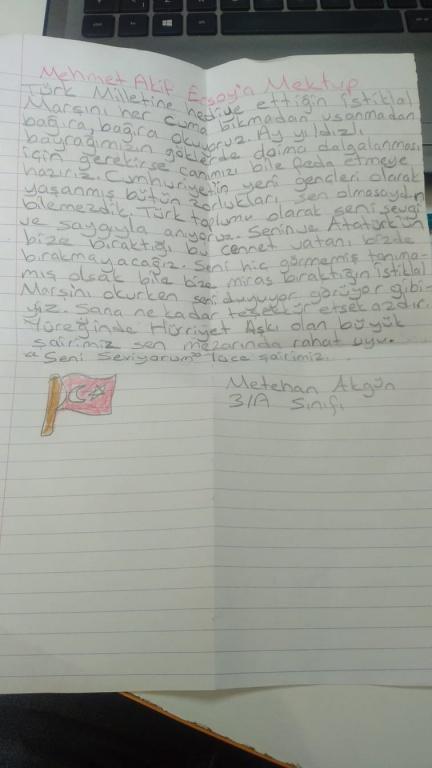 Mehmet Akif Ersoy'a Mektup
Türk Milletine hediye ettiğin İstiklal
Marşını her cuma bıkmadan usanmadan
bağıra, bağıra okuyoruz. Ay yıldızlı
bayrağımızın göklerde daima dalgalanması
için gerekirse canımızı bile feda etmeye
hazırız. Cumhuriyetin yeni gençleri olarak
yaşanmış bütün zorlukları, sen olmasaydın
bilemezdik. Türk toplumu olarak seni sevgi
ve saygıyla anıyoruz. Senin ve Atatürk'ün
bize bıraktığı bu cennet vatanı, bizde
bırakmayacağız. Seni hiç görmemiş tanıma-
mış olsak bile bize miras bıraktığın İstiklal
Marşını okurken seni duyuyor, görüyor gibi-
yiz. Sana ne kadar teşekkür etsek azdır.
Yüreğinde Hürriyet Aşkı olan büyük
şairimiz sen mezarında rahat uyu.
"Seni Seviyorum" Yüce şairimiz.
Metehan Akgün
3/A Sınıfı